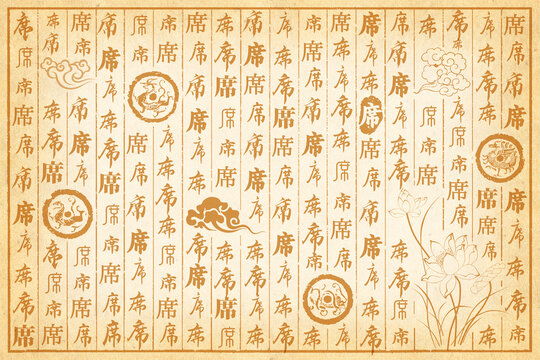 席席席席席席席席席席席
席席席席席席席席
席席席席席席席
席席席席席席席
席席席席席席席席席席席
席席席席席席席席席席席
席席席席席席席席席席席
席席席席席席席席席席
席席席席席席席席席席席
席席席席席席席席席席席席
席席席席席席席席席席
席席席席席席席席席席
席席席席席席席席席席席
席席席席席席席席席
席席席席席席席席席席席
席席席席席席席席席席
席席席席席席席席席
席席席席席席席席席席席